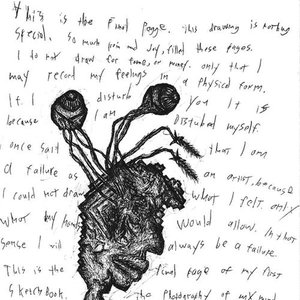 This is the final page. this drawing is nothing
special. so much pain and Joy, filled these pages.
I do not draw for fame, or money. only that I
may record my feelings in a physical form.
If I disturb you It is
because I am Disturbed myself.
I once said that I am
A failure as an artist, because
I could not draw what I felt. only
what my hands would allow. In that
sense I will always be a failure.
This is the final page of my first
sketchbook. The photography of my